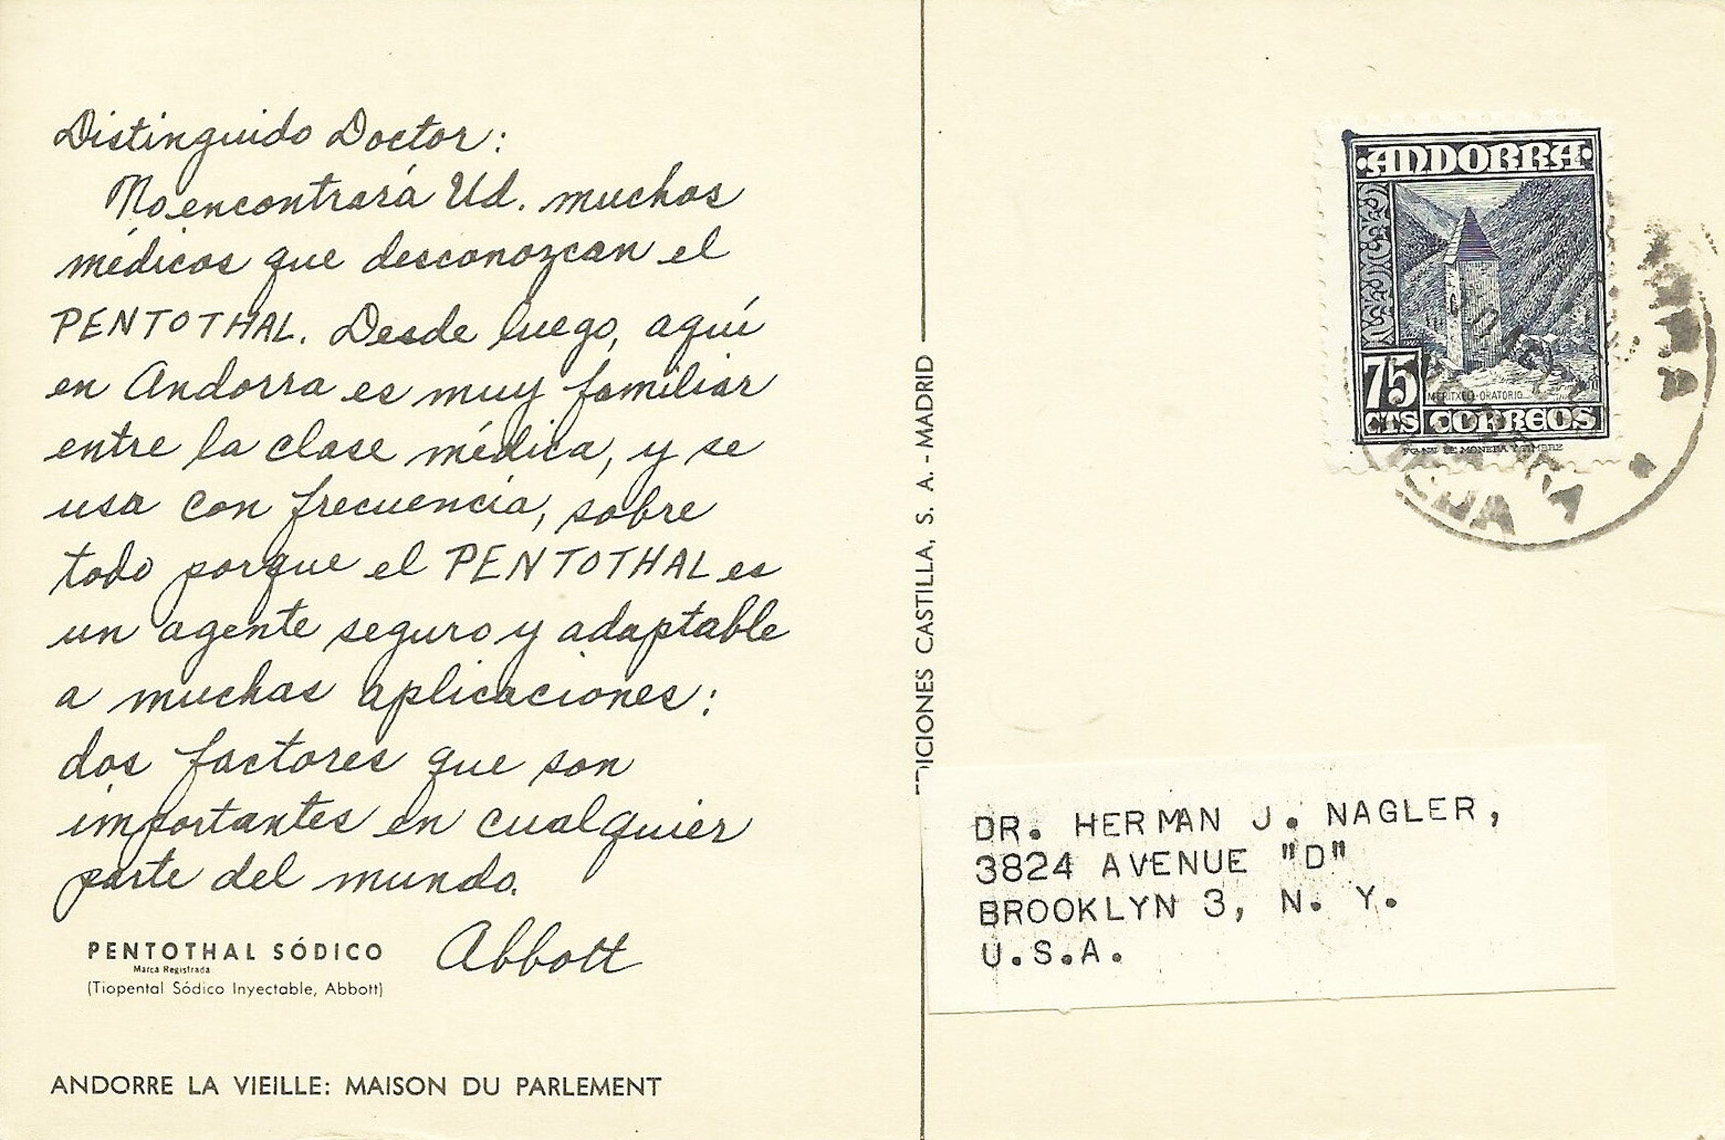 Distinguido Doctor:
No encontrará Ud. muchos
médicos que desconozcan el
PENTOTHAL. Desde luego, aquí
en Andorra es muy familiar
entre la clase médica, y se
usa con frecuencia, sobre
todo porque el PENTOTHAL es
un agente seguro y adaptable
a muchas aplicaciones:
dos factores que son
importantes en cualquier
parte del mundo.
Abbott
PENTOTHAL SÓDICO
Marca Registrada
(Tiopental Sódico Inyectable, Abbott)
ANDORRE LA VIEILLE: MAISON DU PARLEMENT
EDICIONES CASTILLA, S. A. - MADRID
·ANDORRA·
75
CTS CORREOS
MERITXELL-ORATORIO
DE MONEDA Y TIMBRE
DR. HERMAN J. NAGLER,
3824 AVENUE "D"
BROOKLYN 3, N. Y.
U.S.A.